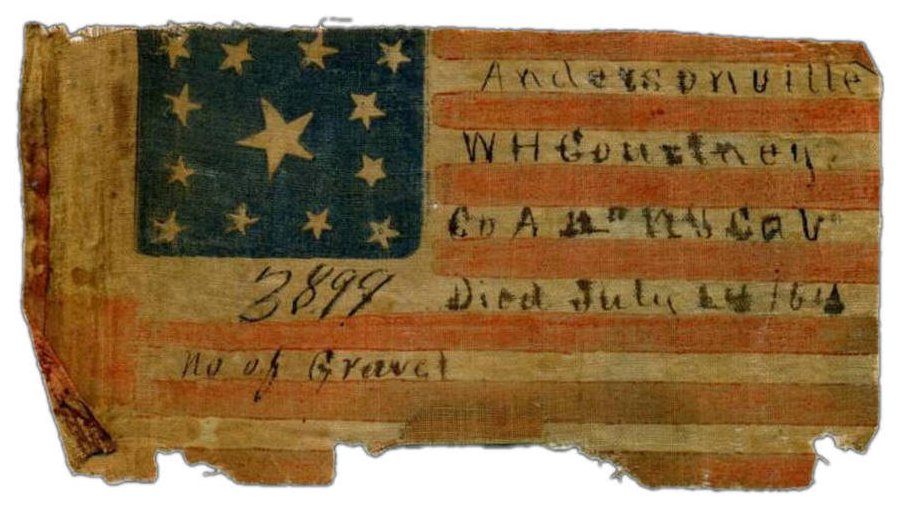 Andersonville
WH Courtney
Co A NY Cav
Died July 64
3899
no of Grave